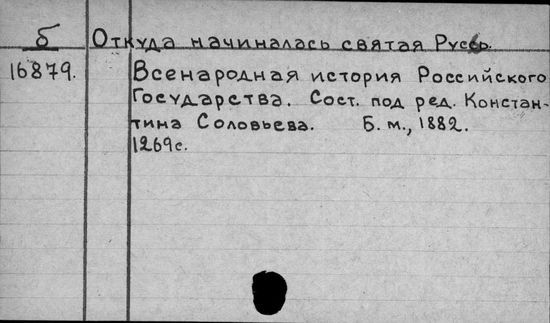 б Откуда начиналась святая Русь.
16879. Всенародная история Российского
Государства. Сост. под ред. Констан-
тина Соловьева. Б. м., 1882.
1269с.